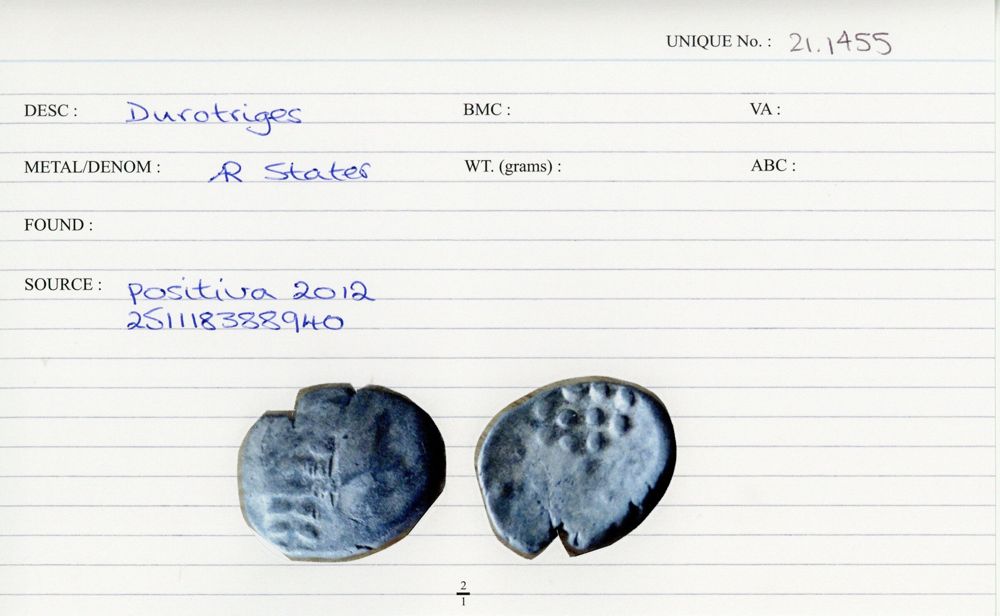 UNIQUE No. : 21.1455
DESC : Durotriges BMC : VA :
METAL/DENOM : AR Stater WT. (grams) : ABC :
FOUND :
SOURCE : positiva 2012
251118388940
2
1